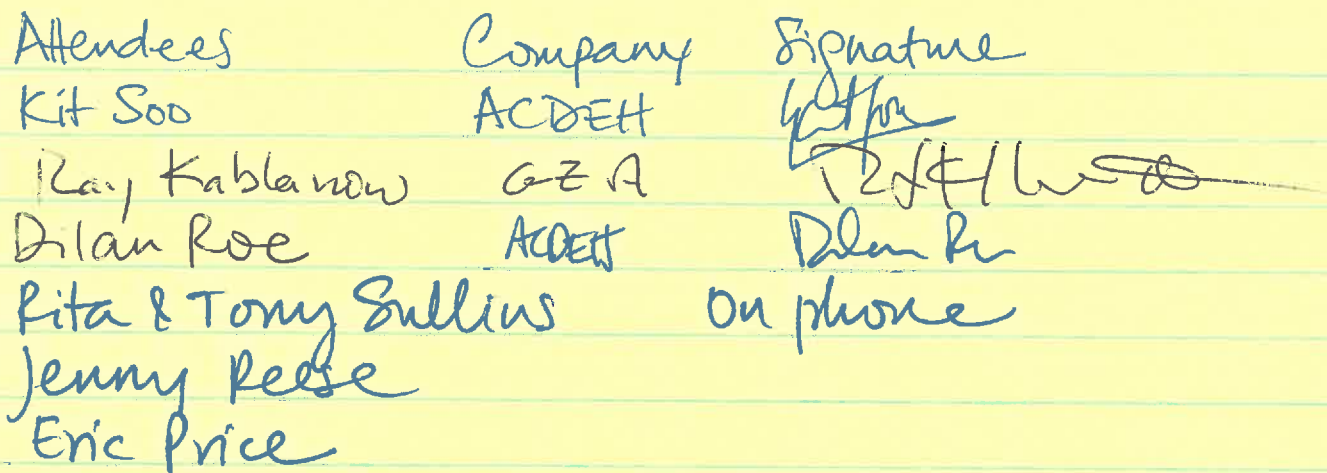 Attendees Company Signature
Kit Soo ACDEH
Ray Kablanow GZA
Dilan Roe ACDEH Dilan Roe
Rita & Tony Sullins On phone
Jenny Reese
Eric Price